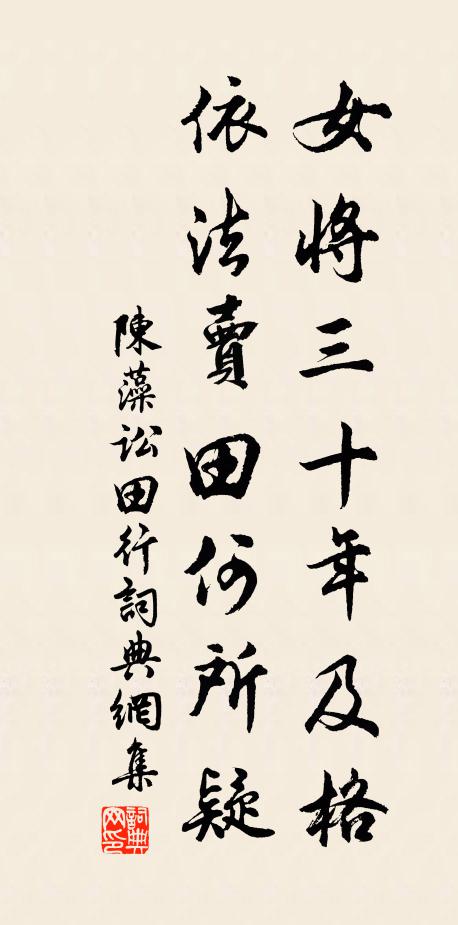 女將三十年及格
依法賣田何所疑
陳藻訟田行詞典網集
詞典網印